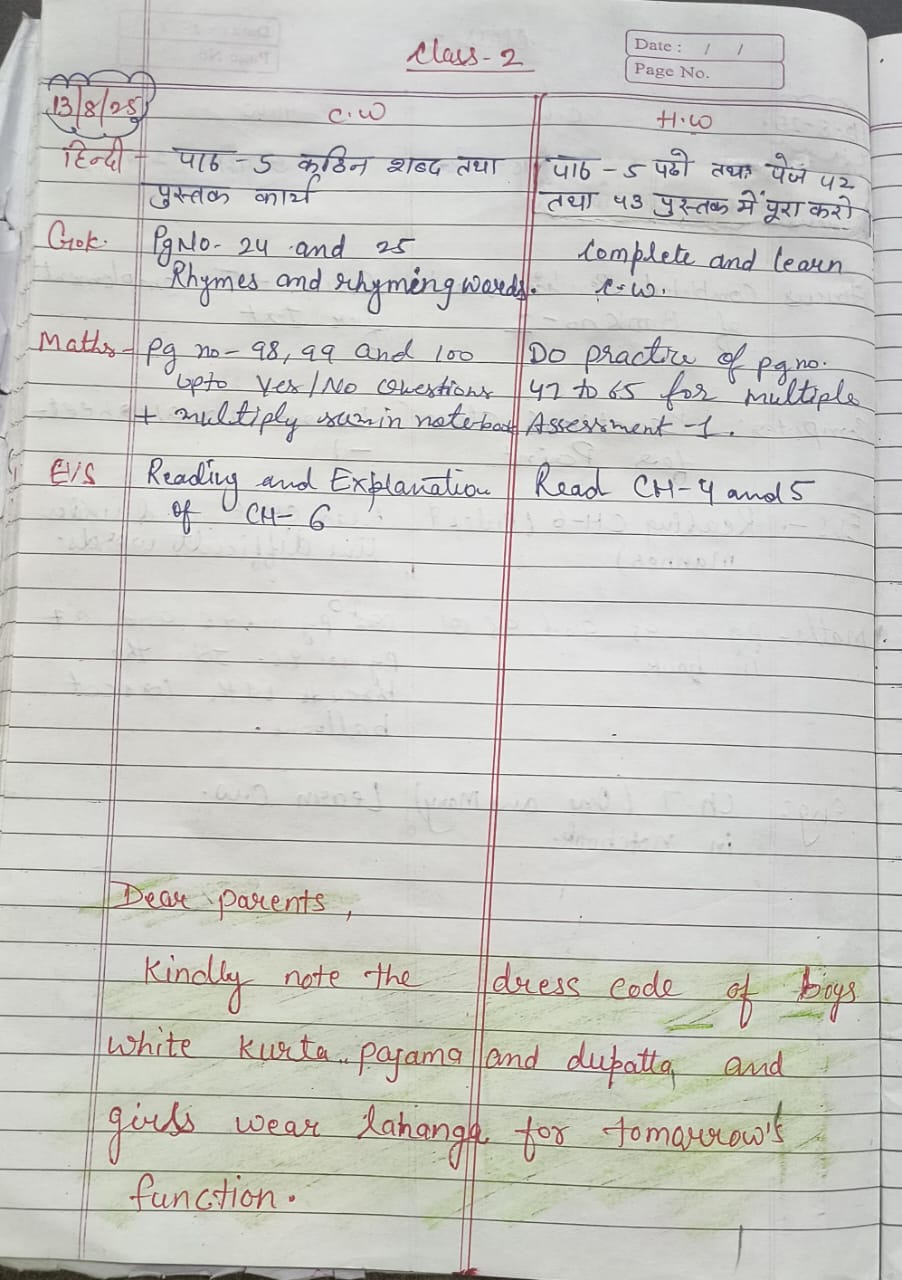 Class-2
Date : / /
Page No.
13/8/25
C.W
H.W
हिन्दी - पाठ - 5 कठिन शब्द तथा
पुस्तक कार्य
पाठ - 5 पढो तथा पेज 42
तथा 43 पुस्तक में पूरा करो
G.k. Pg No- 24 and 25
Rhymes and rhyming words.
Complete and learn
c.w.
Maths - Pg no- 98, 99 and 100
upto Yes/No Questions
+ multiply sum in notebook
Do practice of pg no.
47 to 65 for multiple
Assessment -1.
EVS Reading and Explanation
of CH- 6
Read CH-4 and 5
Dear parents,
Kindly note the dress code of boys
white kurta pajama and dupatta and
girls wear lahanga for tomarrow's
function.